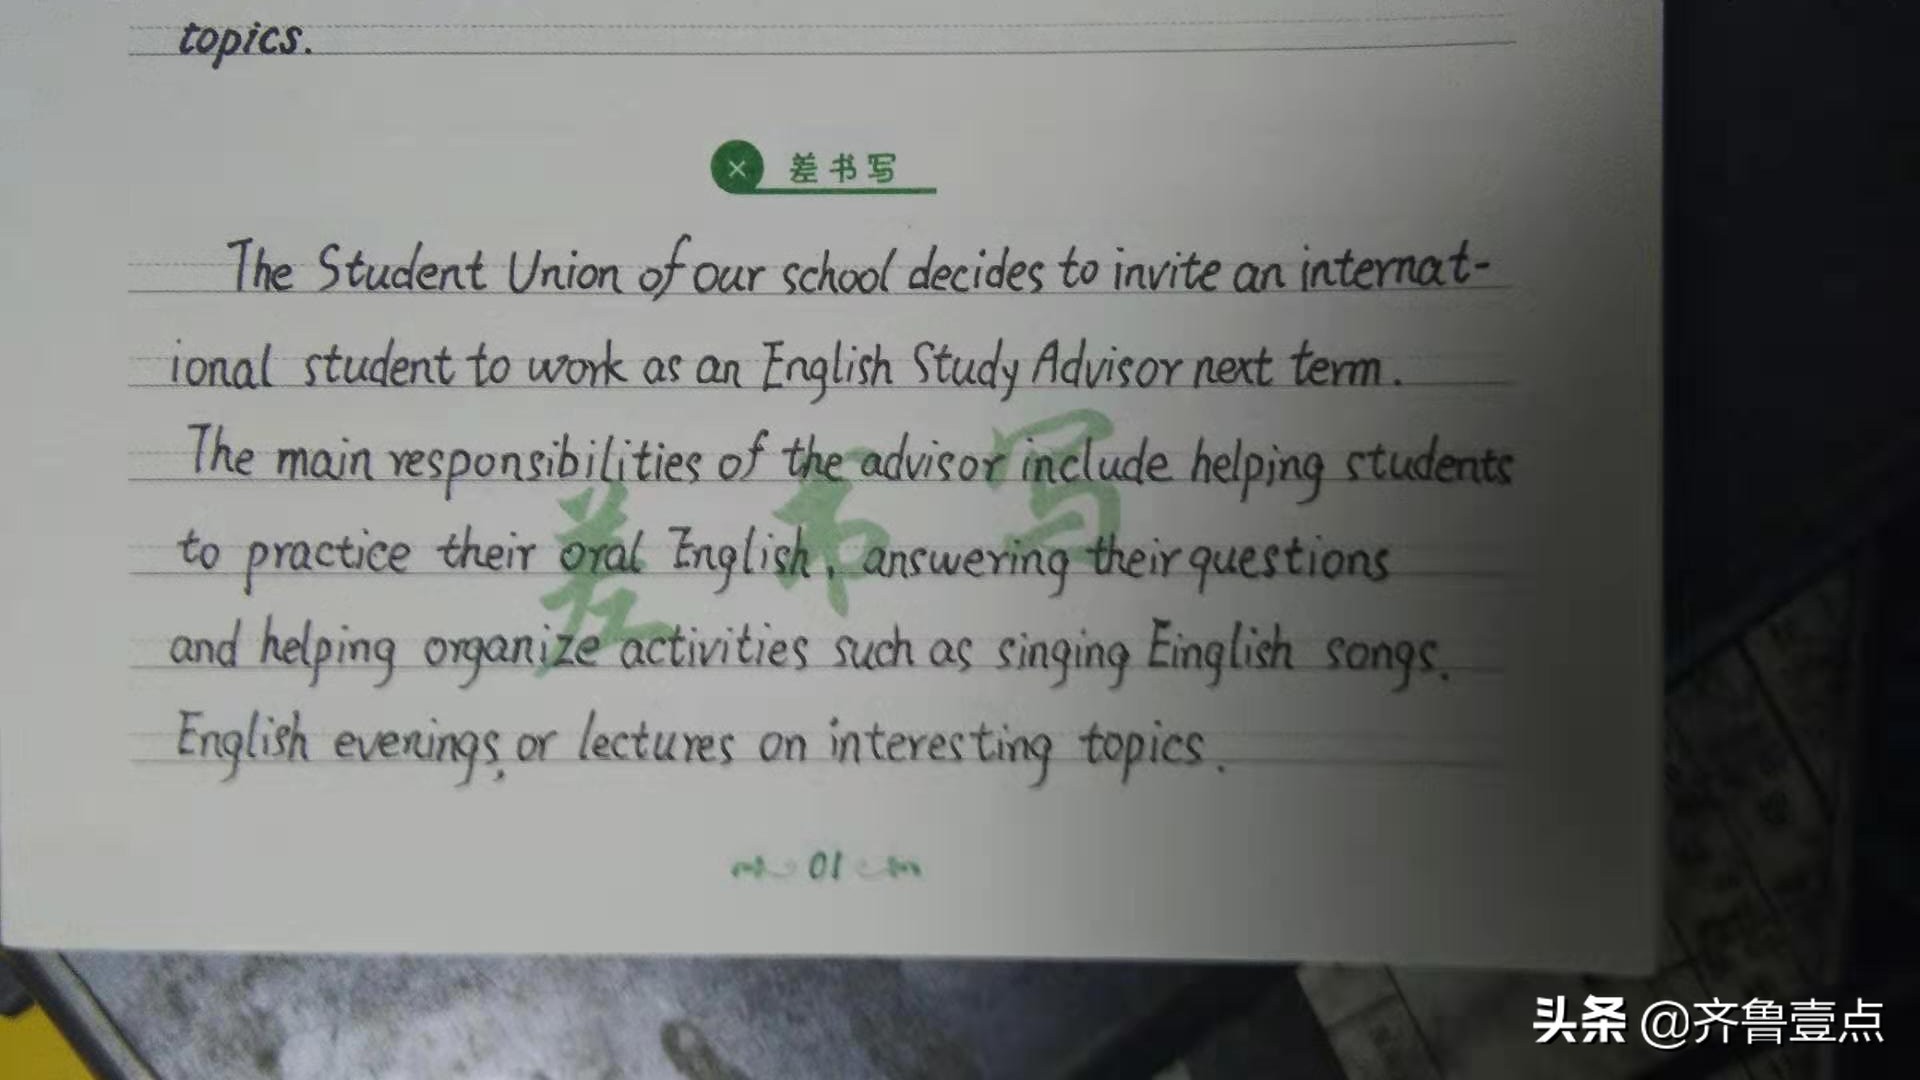 topics.
× 差书写
The Student Union of our school decides to invite an internat-
ional student to work as an English Study Advisor next term.
The main responsibilities of the advisor include helping students
to practice their oral English, answering their questions
and helping organize activities such as singing Einglish songs.
English evenings, or lectures on interesting topics.
差书写
01
头条 @齐鲁壹点